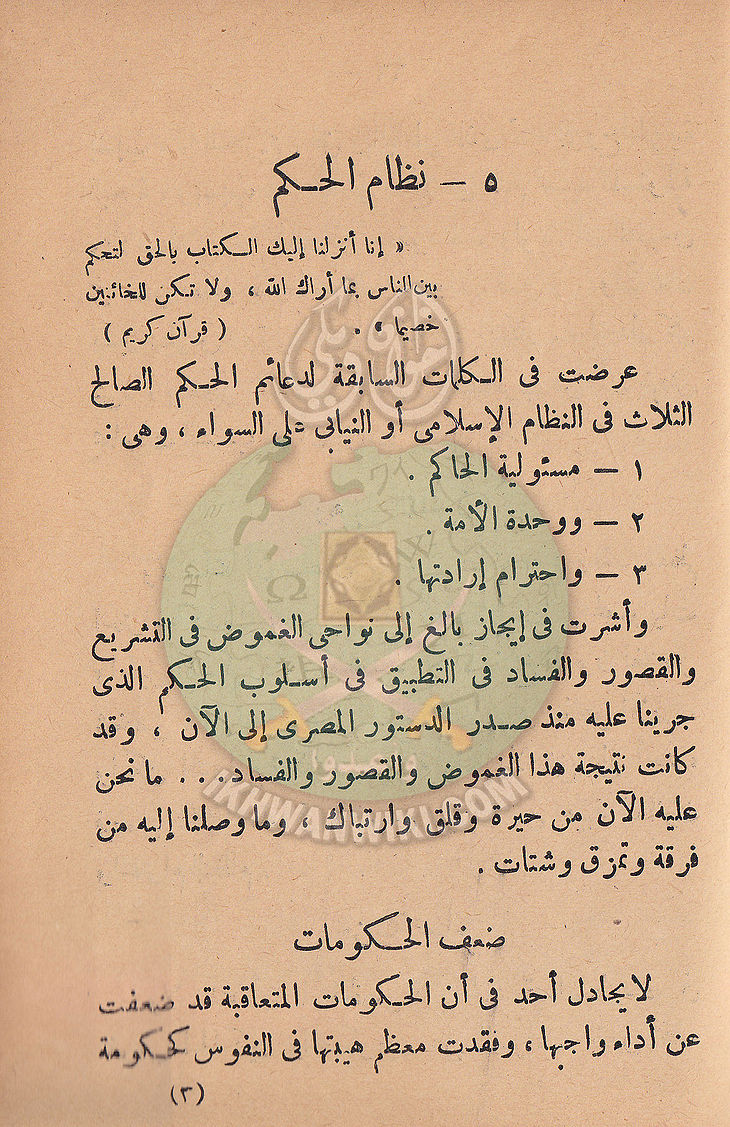 ٥ — نظام الحكم
« إنا أنزلنا إليك الكتاب بالحق لتحكم
بين الناس بما أراك الله ، ولا تكن للخائنين
خصيما » . ( قرآن كريم )
عرضت فى الكلمات السابقة لدعائم الحكم الصالح
الثلاث فى النظام الإسلامى أو النيابى على السواء ، وهى :
١ — مسئولية الحاكم .
٢ — ووحدة الأمة .
٣ — واحترام إرادتها .
وأشرت فى إيجاز بالغ إلى نواحى الغموض فى التشريع
والقصور والفساد فى التطبيق فى أسلوب الحكم الذى
جرينا عليه منذ صدر الدستور المصرى إلى الآن ، وقد
كانت نتيجة هذا الغموض والقصور والفساد . . . ما نحن
عليه الآن من حيرة وقلق وارتباك ، وما وصلنا إليه من
فرقة وتمزق وشتات .
ضعف الحكومات
لا يجادل أحد فى أن الحكومات المتعاقبة قد ضعفت
عن أداء واجبها ، وفقدت معظم هيبتها فى النفوس كحكومة
(٣)
IKHWANWIKI.COM